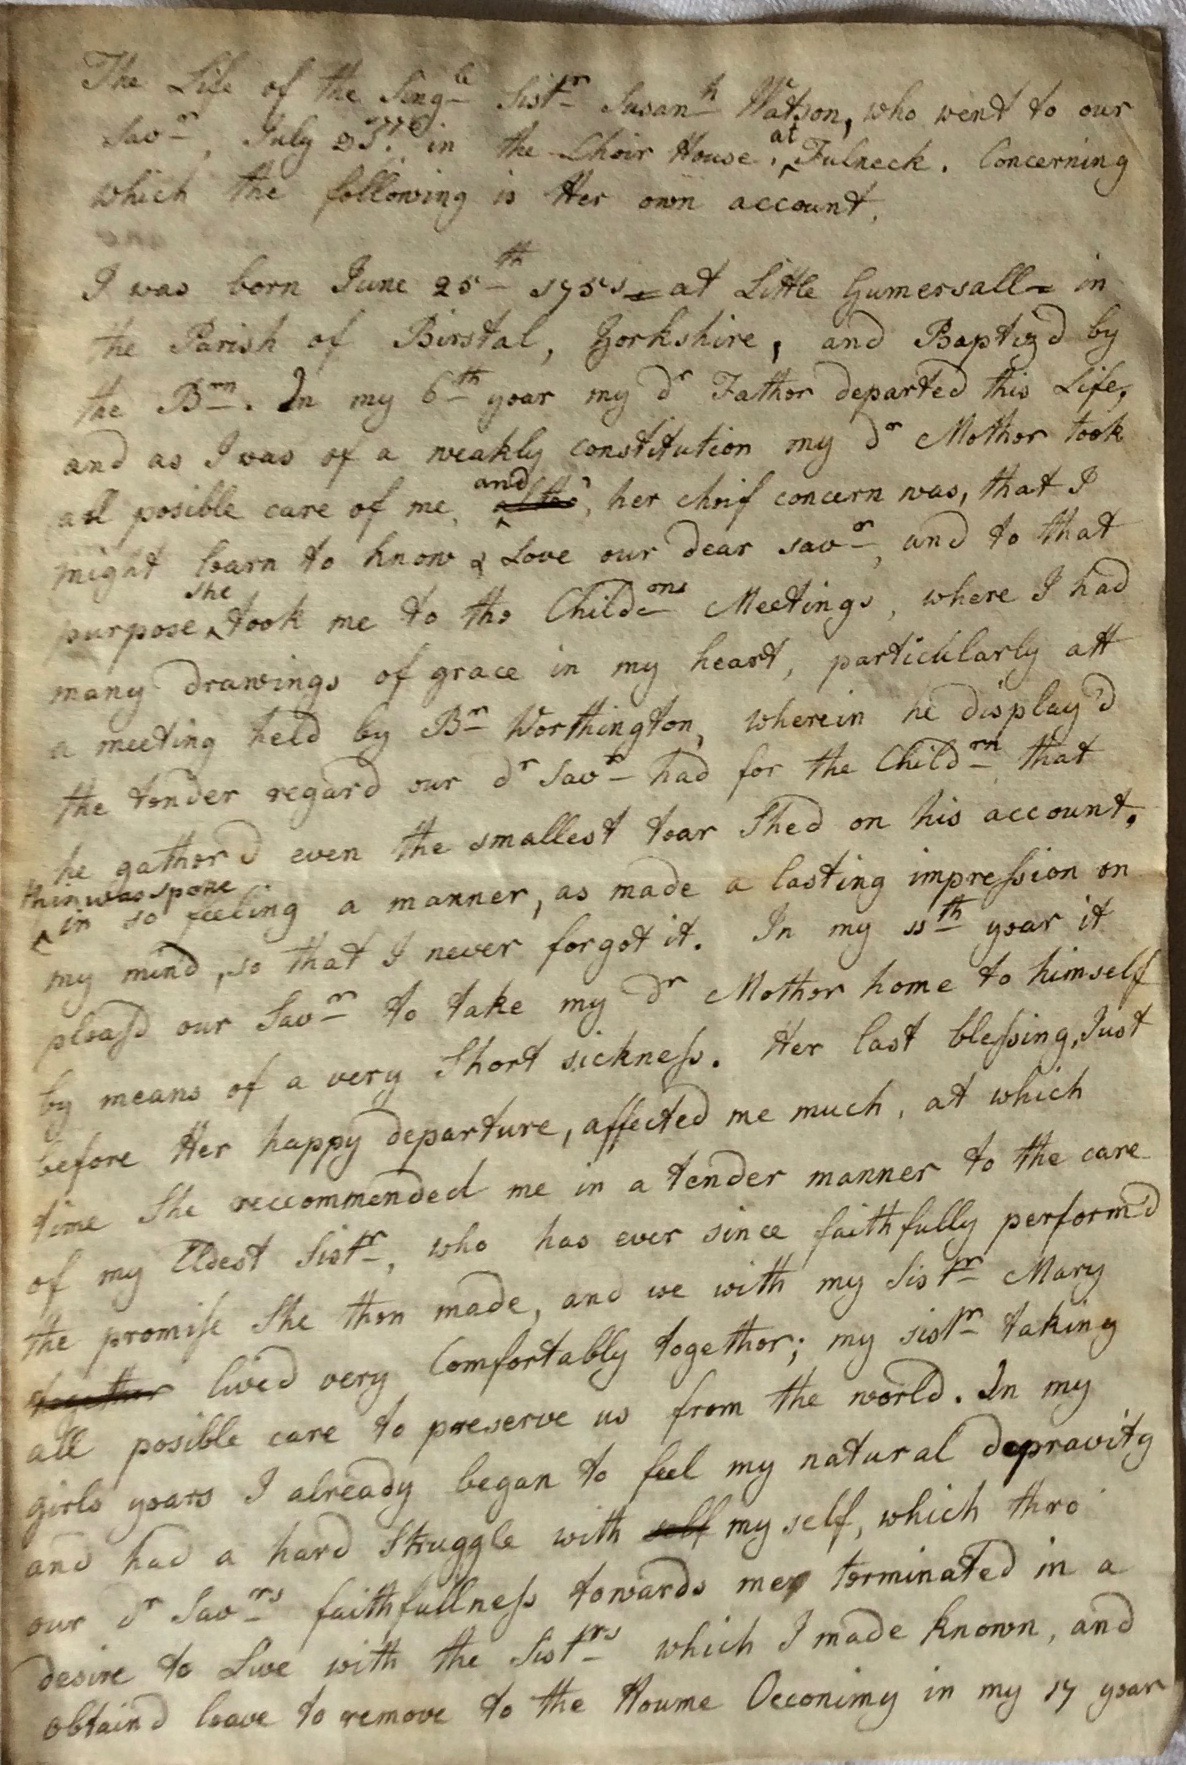 The Life of the Sing^le Sist^r Susan^h Watson, who went to our
Sav^r, July 23. in the Choir House, ^at Fulneck. Concerning
which the following is Her own account.
I was born June 25^th 1751 at Little Gumersall in
the Parish of Birstal, Yorkshire, and Baptiz'd by
the B^rn. In my 6^th year my d^r Father departed this Life,
and as I was of a weakly constitution my d^r Mother took
all posible care of me, ^and her cheif concern was, that I
might learn to know & Love our dear Sav^or, and to that
purpose ^she took me to the Child^ens Meetings, where I had
many drawings of grace in my heart, particularly att
a meeting held by B^r Worthington, wherein he display'd
the tender regard our d^r Sav^r had for the Child^rn that
he gather'd even the smallest tear Shed on his account,
^this was spoke in so feeling a manner, as made a lasting impression on
my mind, so that I never forgot it. In my 11^th year it
pleas'd our Sav^r to take my d^r Mother home to himself
by means of a very Short sickness. Her last blessing, Just
before Her happy departure, affected me much, at which
time She reccommended me in a tender manner to the care
of my Eldest Sist^r, who has ever since faithfully perform'd
the promise She then made, and we with my Sist^r Mary
~~together~~ lived very Comfortably together; my sist^r taking
all posible care to preserve us from the world. In my
girls years I already began to feel my natural depravity
and had a hard Struggle with ~~self~~ my self, which thro'
our d^r Sav^rs faithfullness towards me, terminated in a
desire to Live with the Sist^rs which I made known, and
obtain'd leave to remove to the Houme Oeconimy in my 17 year